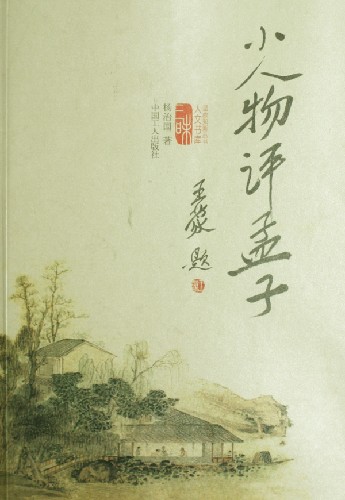 小人物评孟子
人文书库
三味
治国 著
中国工人出版社
王蒙 题